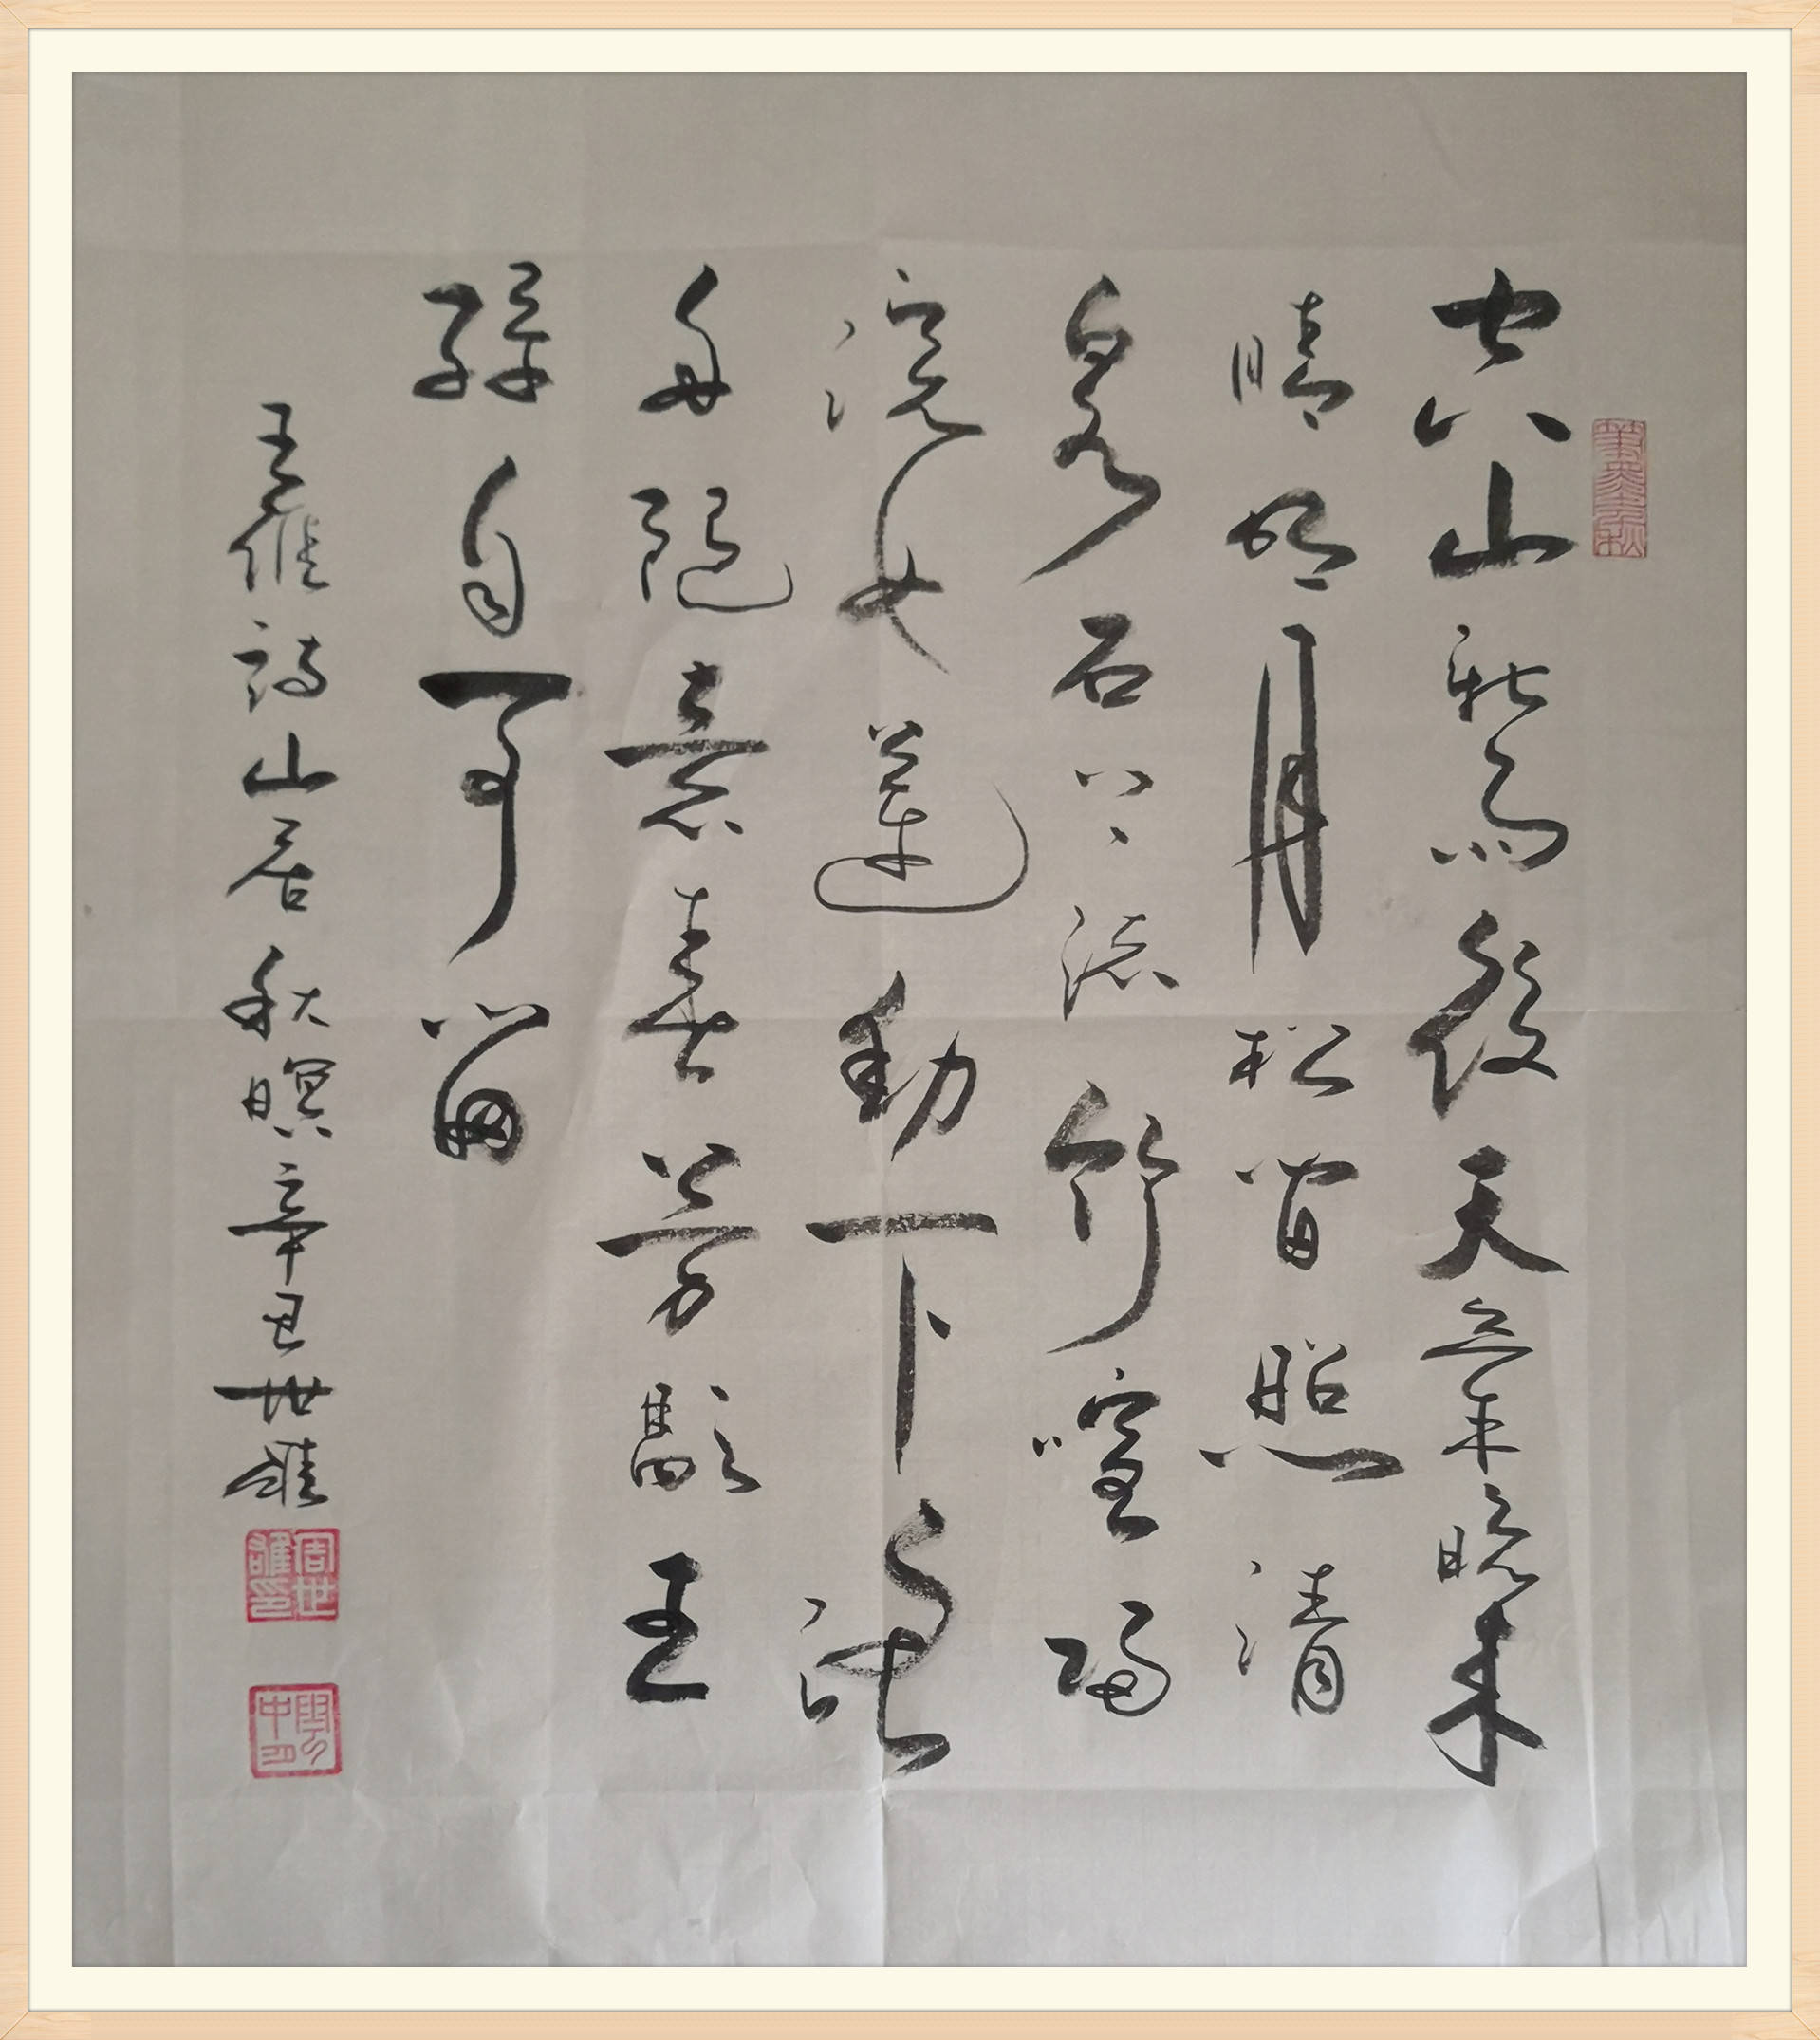 筆墨春秋
空山新雨後天氣晚来
晴明月松間照清
泉石上流竹喧歸
浣女蓮動下漁
舟隨意春芳歇王
孫自可留
王維詩山居秋暝辛丑世雄
周世雄印